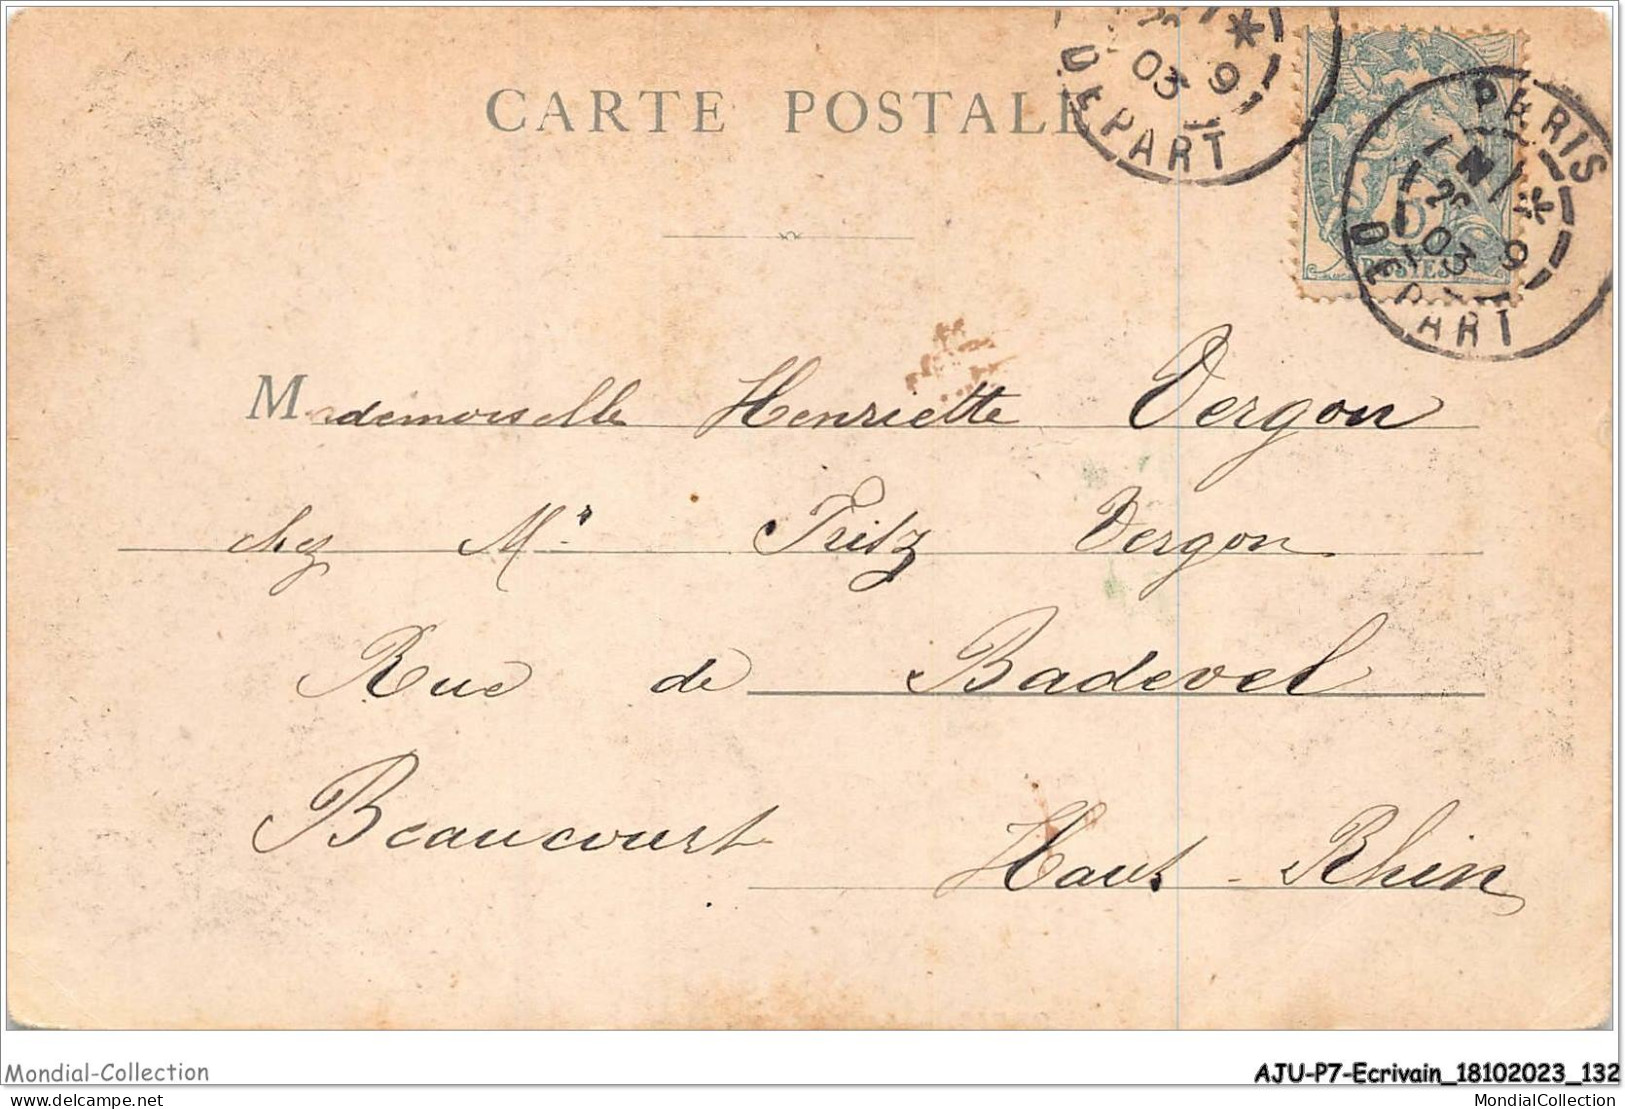 CARTE POSTALE
DEPART
03 9
PARIS
DEPART
03 9
5
POSTES
Mademoiselle Henriette Vergon
chez Mr Fritz Vergon
Rue de Badevel
Beaucourt
Haut-Rhin
Mondial-Collection
AJU-P7-Ecrivain_18102023_132
delcampe.net
MondialCollection